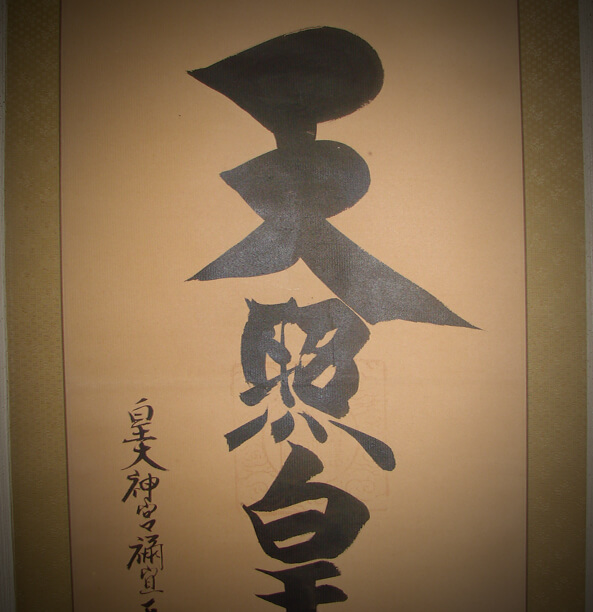 天照皇
皇大神宮禰宜正